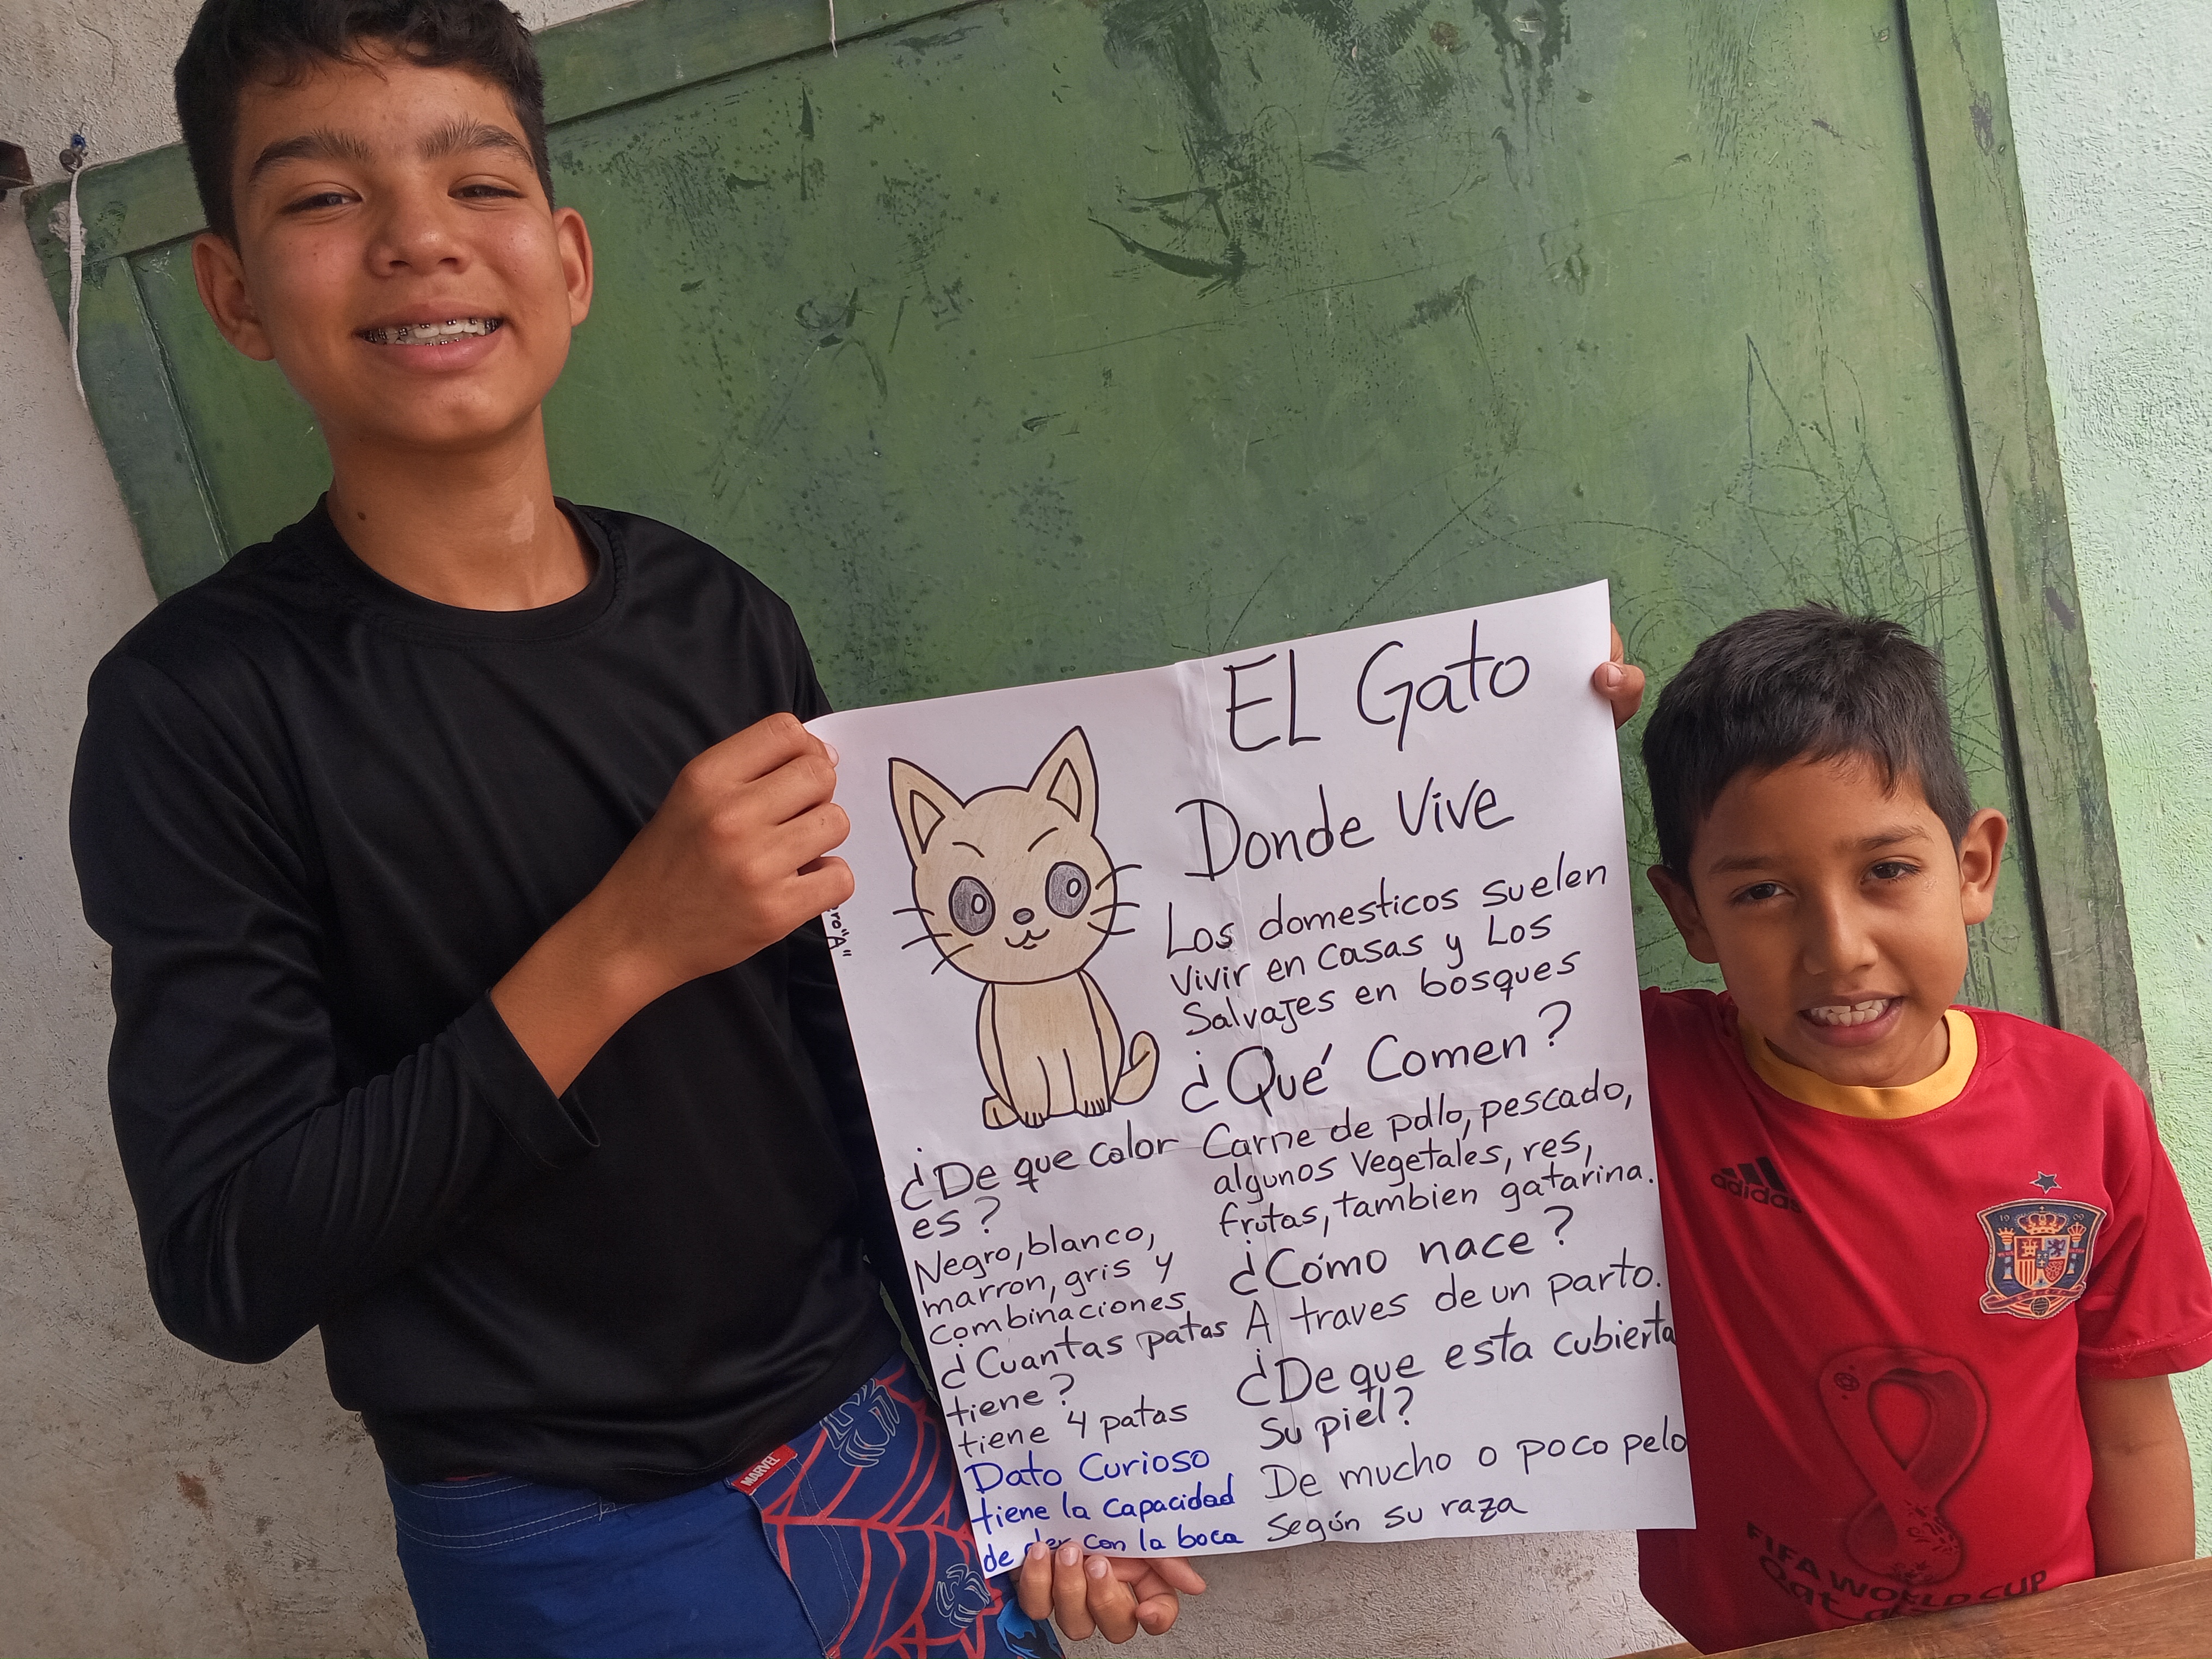 EL Gato
Donde Vive
Los domesticos suelen
vivir en casas y Los
Salvajes en bosques
¿Qué Comen?
Carne de pollo, pescado,
algunos vegetales, res,
frutas, tambien gatarina.
¿Cómo nace?
A traves de un parto.
¿De que esta cubierta
su piel?
De mucho o poco pelo
Según su raza
¿De que color
es?
Negro, blanco,
marron, gris y
combinaciones
¿Cuantas patas
tiene?
tiene 4 patas
Dato Curioso
tiene la capacidad
de con la boca
"A"
MARVEL
adidas
FIFA WORLD CUP